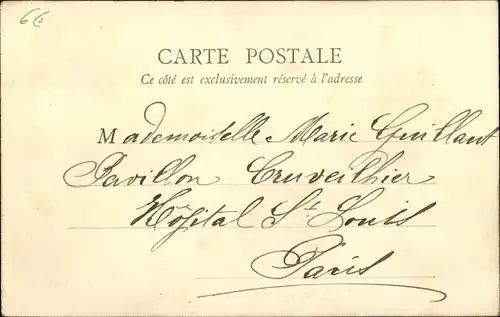 66
CARTE POSTALE
Ce côté est exclusivement réservé à l'adresse
Mademoiselle Marie Guillaut
Pavillon Cruveilhier
Hôpital St Louis
Paris